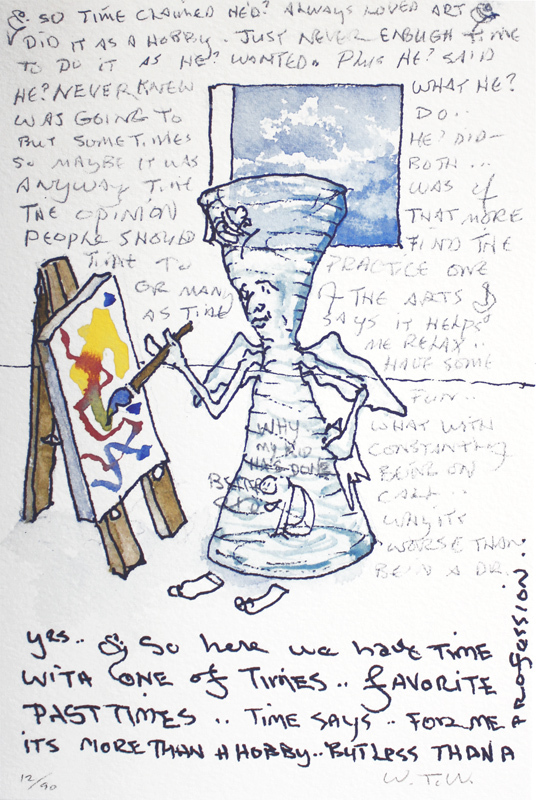 SO TIME CLAIMED HE'D? ALWAYS LOVED ART &
DID IT AS A HOBBY. JUST NEVER ENOUGH TIME
TO DO IT AS HE? WANTED. PLUS HE? SAID
HE? NEVER KNEW WHAT HE?
WAS GOING TO DO..
BUT SOMETIMES HE? DID-
SO MAYBE IT WAS BOTH...
ANYWAY TIME WAS of
THE OPINION THAT MORE
PEOPLE SHOULD FIND THE
TIME TO PRACTICE ONE
OR MANY of THE ARTS &
AS TIME SAYS IT HELPS
ME RELAX..
HAVE SOME
FUN..
WHAT WITH
CONSTANTLY
BEING ON
CALL...
WHY ITS
WORSE THAN
BEIN A DR.
WHY
MY KID
HAS DONE
yes.. & So here we have TIME
WITH ONE of TIMES.. fAVORITE
PAST TIMES.. TIME SAYS.. FOR ME
ITS MORE THAN A HOBBY.. BUT LESS THAN A
PROFESSION.
12/90
W.T.W.